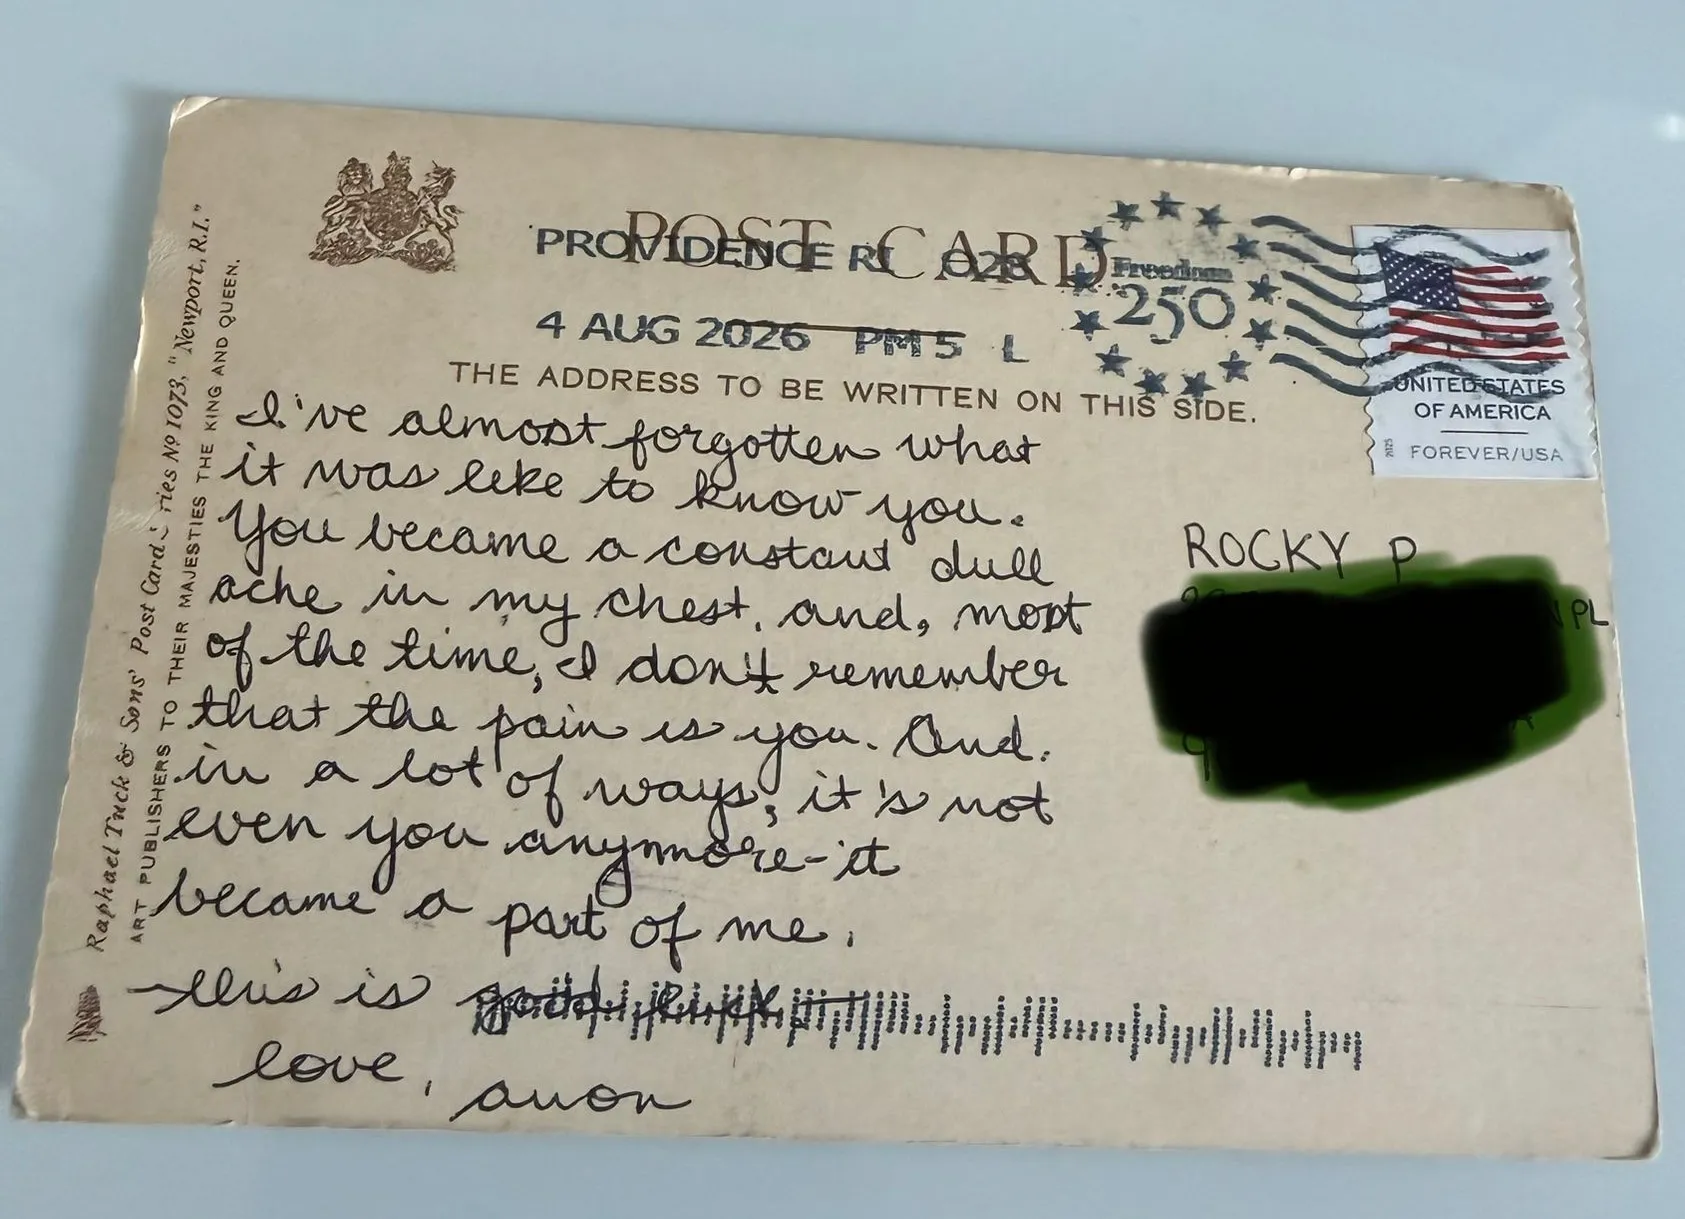 POST CARD
PROVIDENCE RI 028
4 AUG 2026 PM 5 L
Freedom
250
THE ADDRESS TO BE WRITTEN ON THIS SIDE.
UNITED STATES
OF AMERICA
FOREVER/USA
2025
Raphael Tuck & Sons' Post Card Series Nº 1073, "Newport, R.I."
ART PUBLISHERS TO THEIR MAJESTIES THE KING AND QUEEN.
I've almost forgotten what
it was like to know you.
You became a constant dull
ache in my chest, and, most
of the time, I don't remember
that the pain is you. And,
in a lot of ways, it's not
even you anymore-it
became a part of me.
-this is good luck,
love, anon
ROCKY P
N PL